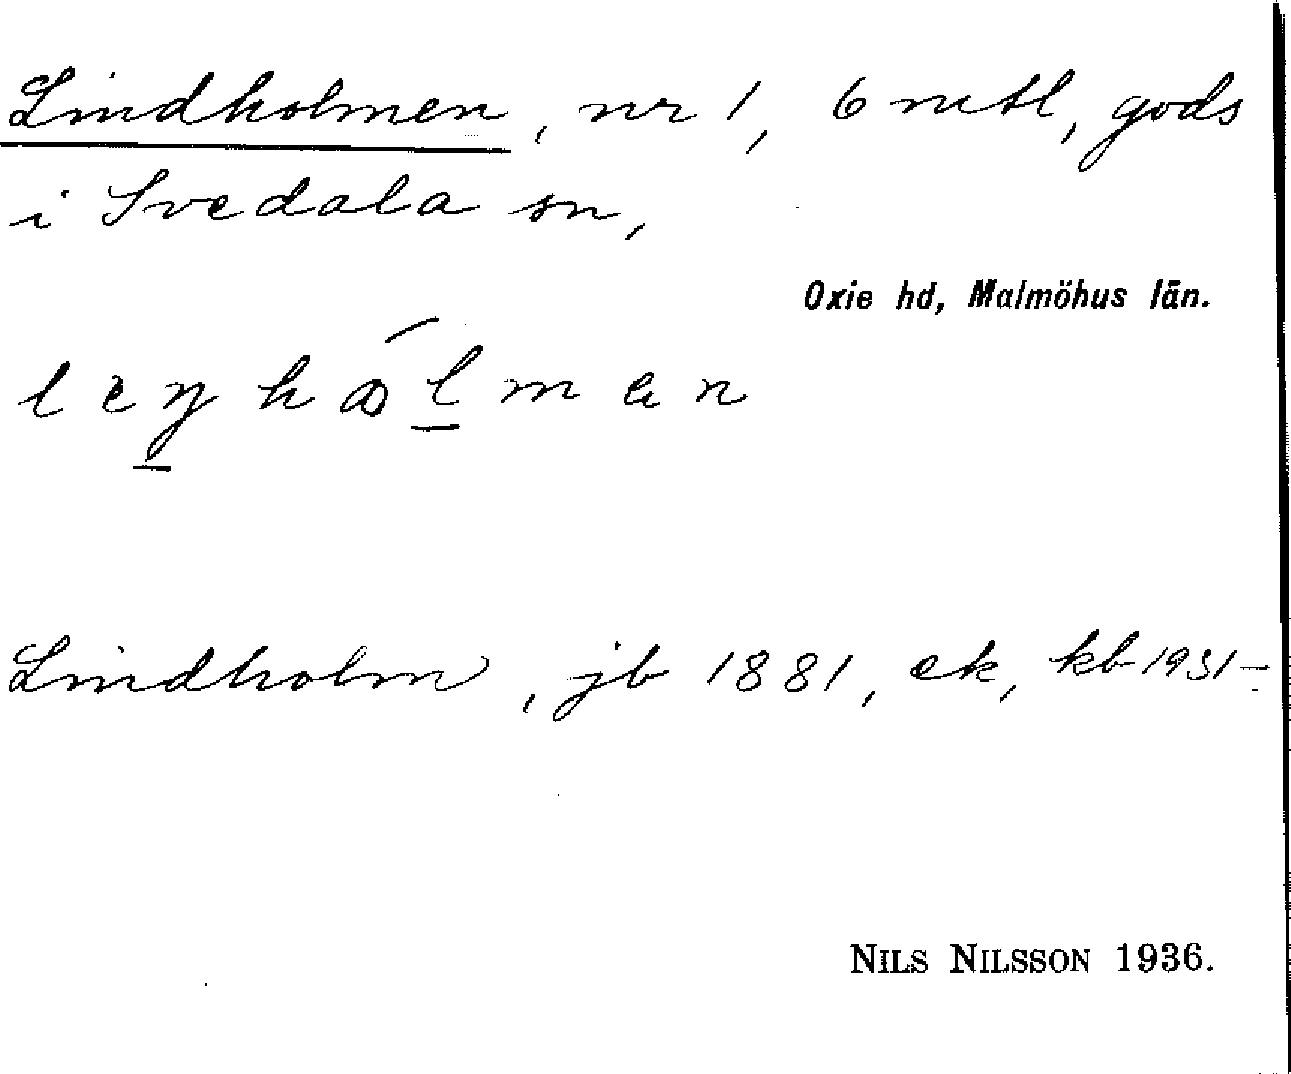 Lindholmen, nr 1, 6 mtl, gods
i Svedala sn,
Oxie hd, Malmöhus län.
Lindholm, jb 1881, ek, kb 1931-
NILS NILSSON 1936.